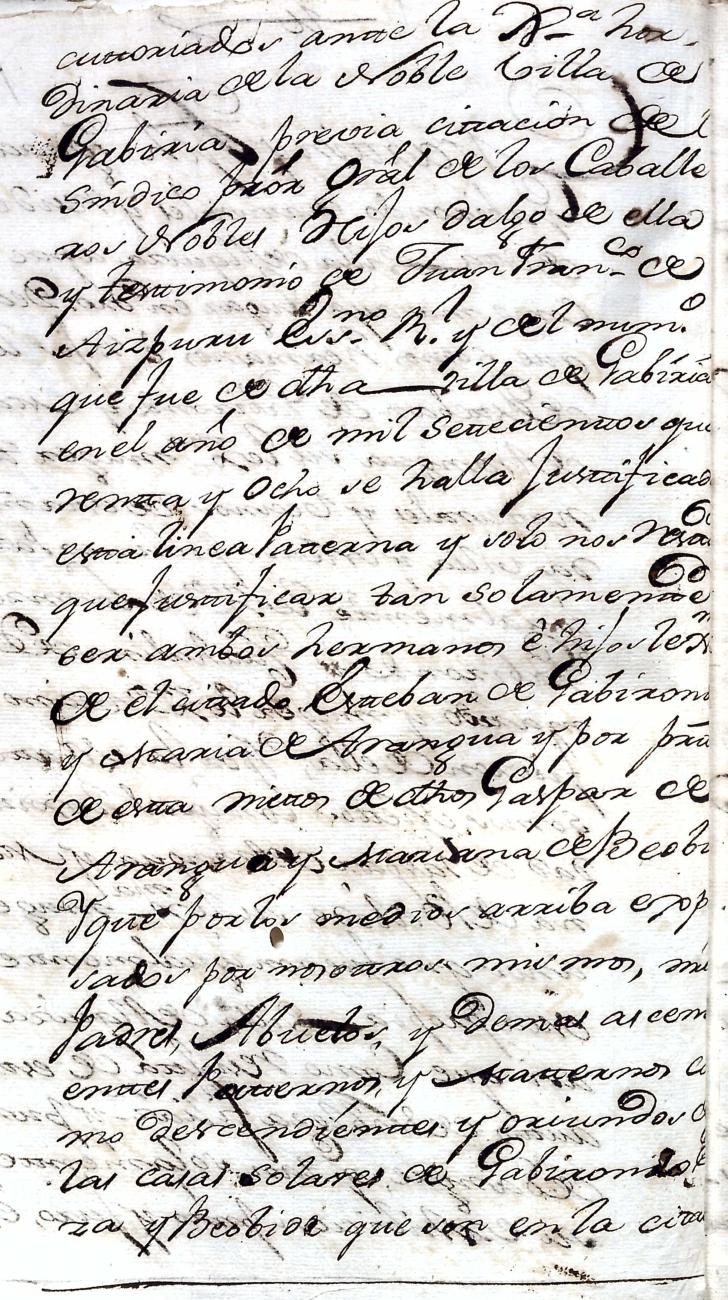 cuttoriados antte la Rª hor-
dinaria de la Noble Villa de
Gabiria, previa cittacion del
Sindico prór Grál de los Caballe
ros Nobles Hijos dalgo de ella
y testtimonio de Juan Franco de
Aizpuru Essno Rl. y del numo
que fue de dha villa de Gabiria
en el año de mil settecienttos qua
rentta y Ocho se halla Justtificad
estta linea Patterna y solo nos resta
que Justtificar tan solamentte
ser ambos hermanos é hijos lex
de el cittado Estteban de Gabirond
y Maria de Arangua y por
de estta niettos de dhos Gaspar de
Arangua y Mariana de Beobi
Y que por los medios arriba exp
sados por nosottros mismos, nu
Padres, Abuelos, y Demas ascen
enttes Patternos y Matternos co
mo Descendienttes y oriundos
las casas solares de Gabirond
za y Beobide que son en la citta